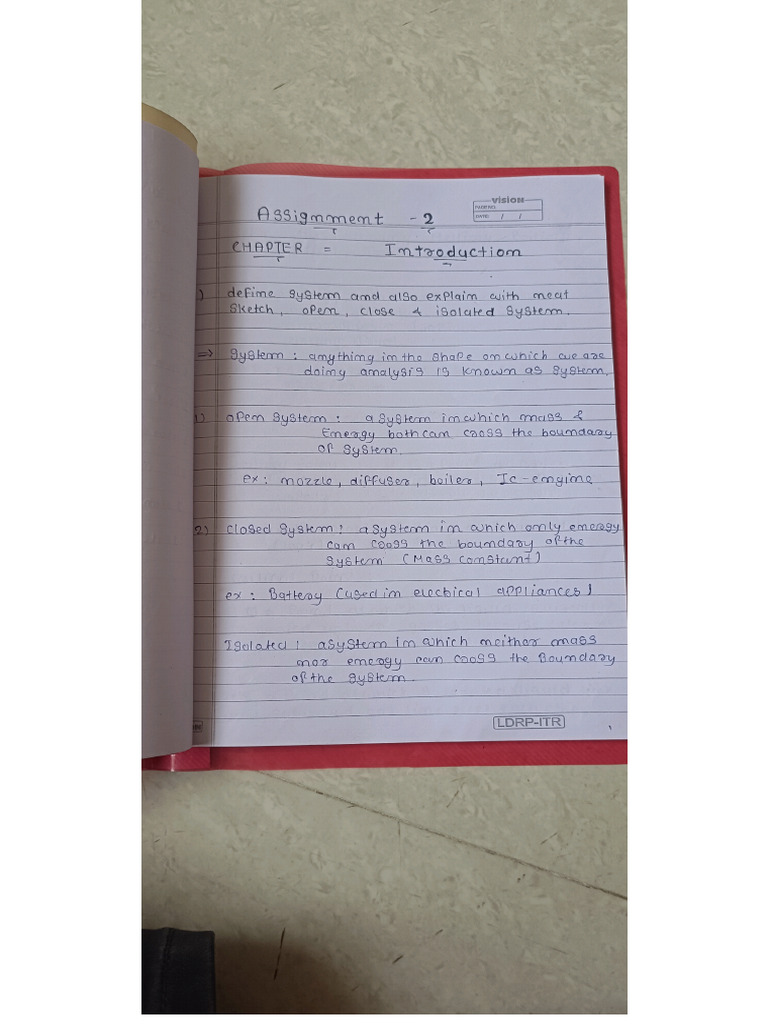 Assignment - 2
vision
PAGE NO.:
DATE: / /
CHAPTER = Introduction
1) define system and also explain with neat
sketch, open, close & isolated system.
=> System : anything in the shape on which we are
doing analysis is known as system.
1) open system : a system in which mass &
Energy both can cross the boundary
of system.
ex : nozzle, diffuser, boiler, Ic-engine
2) closed system : a system in which only energy
can cross the boundary of the
system (Mass constant)
ex : Battery (used in elecbical appliances)
Isolated : a system in which neither mass
nor energy can cross the Boundary
of the system.
LDRP-ITR